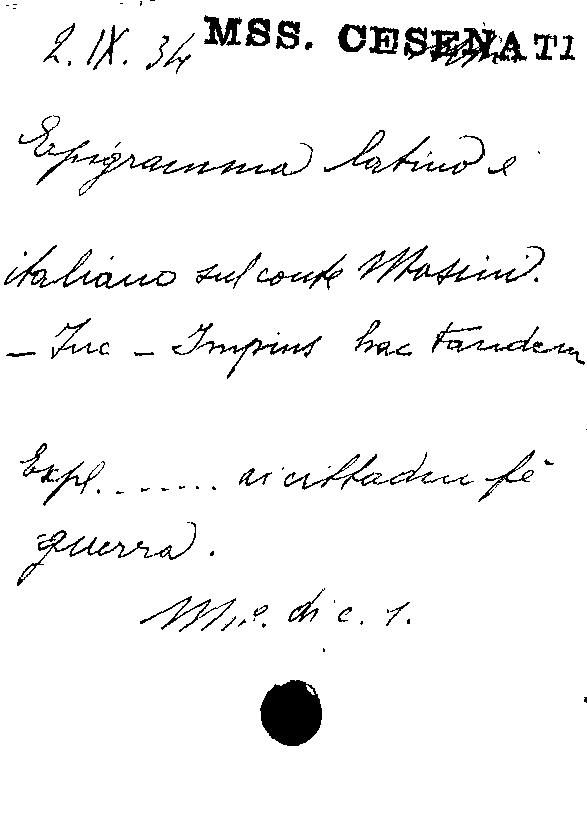 2. IX. 34 MSS. CESENATI
Epigramma latino e
italiano sul conte Masini.
- Inc - Impius hac tandem
Expl. ....... ai cittadin fè
guerra.
di c. 1.